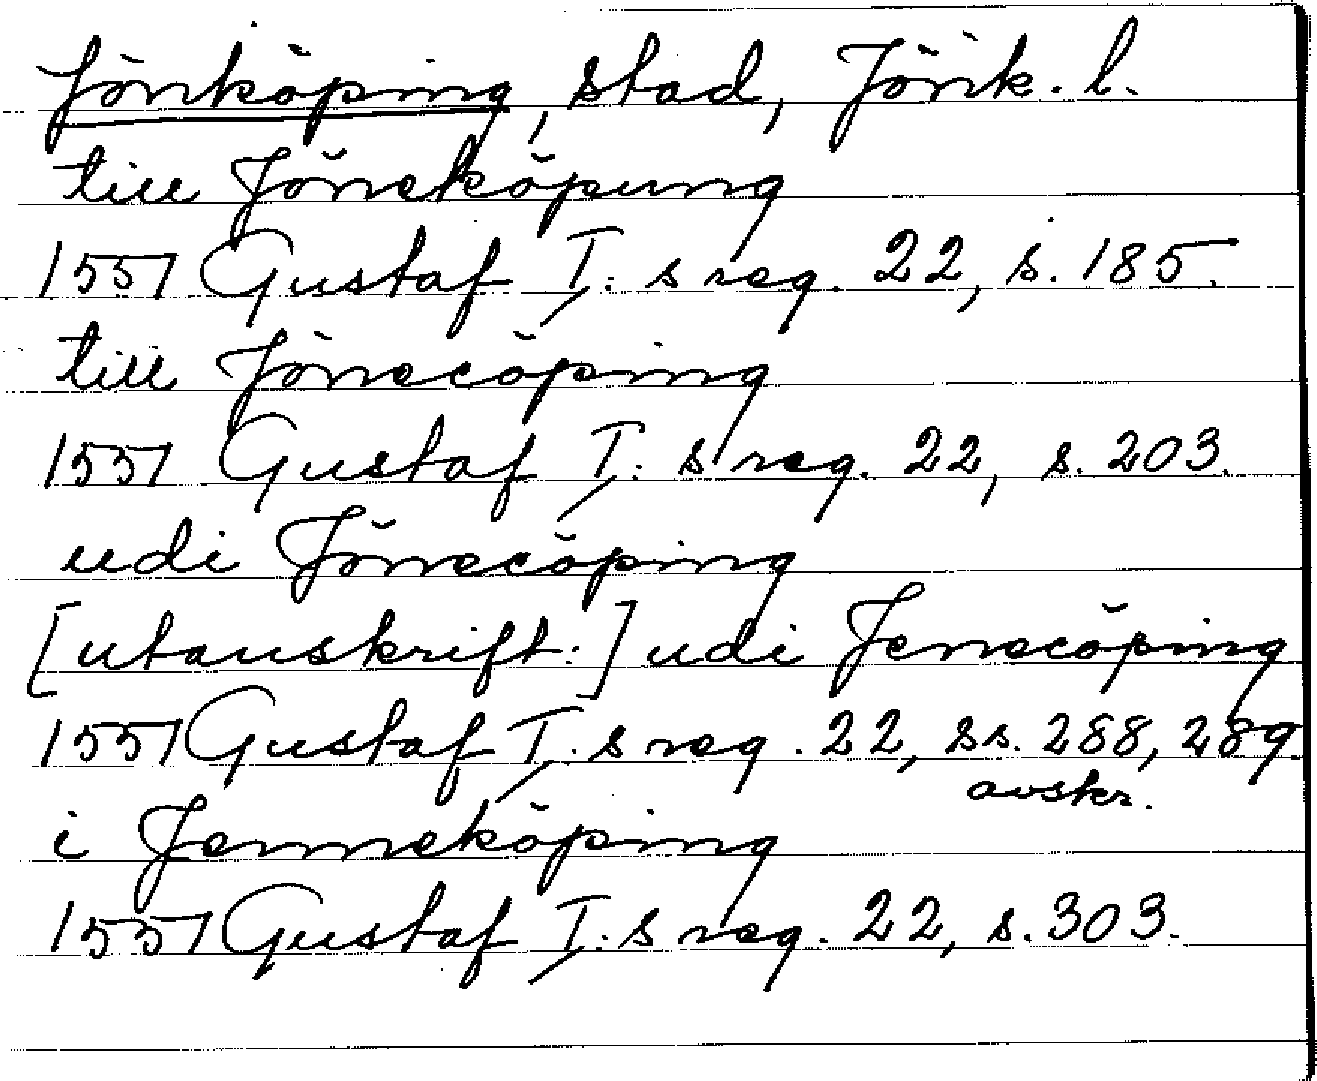 Jönköping, stad, Jönk. l.
till Jöneköpung
1551 Gustaf I:s reg. 22, s. 185.
till Jönecöping
1551 Gustaf I:s reg. 22, s. 203.
udi Jönecöping
[utanskrift:] udi Jenecöping
1551 Gustaf I:s reg. 22, ss. 288, 289
avskr.
i Jenneköping
1551 Gustaf I:s reg. 22, s. 303.